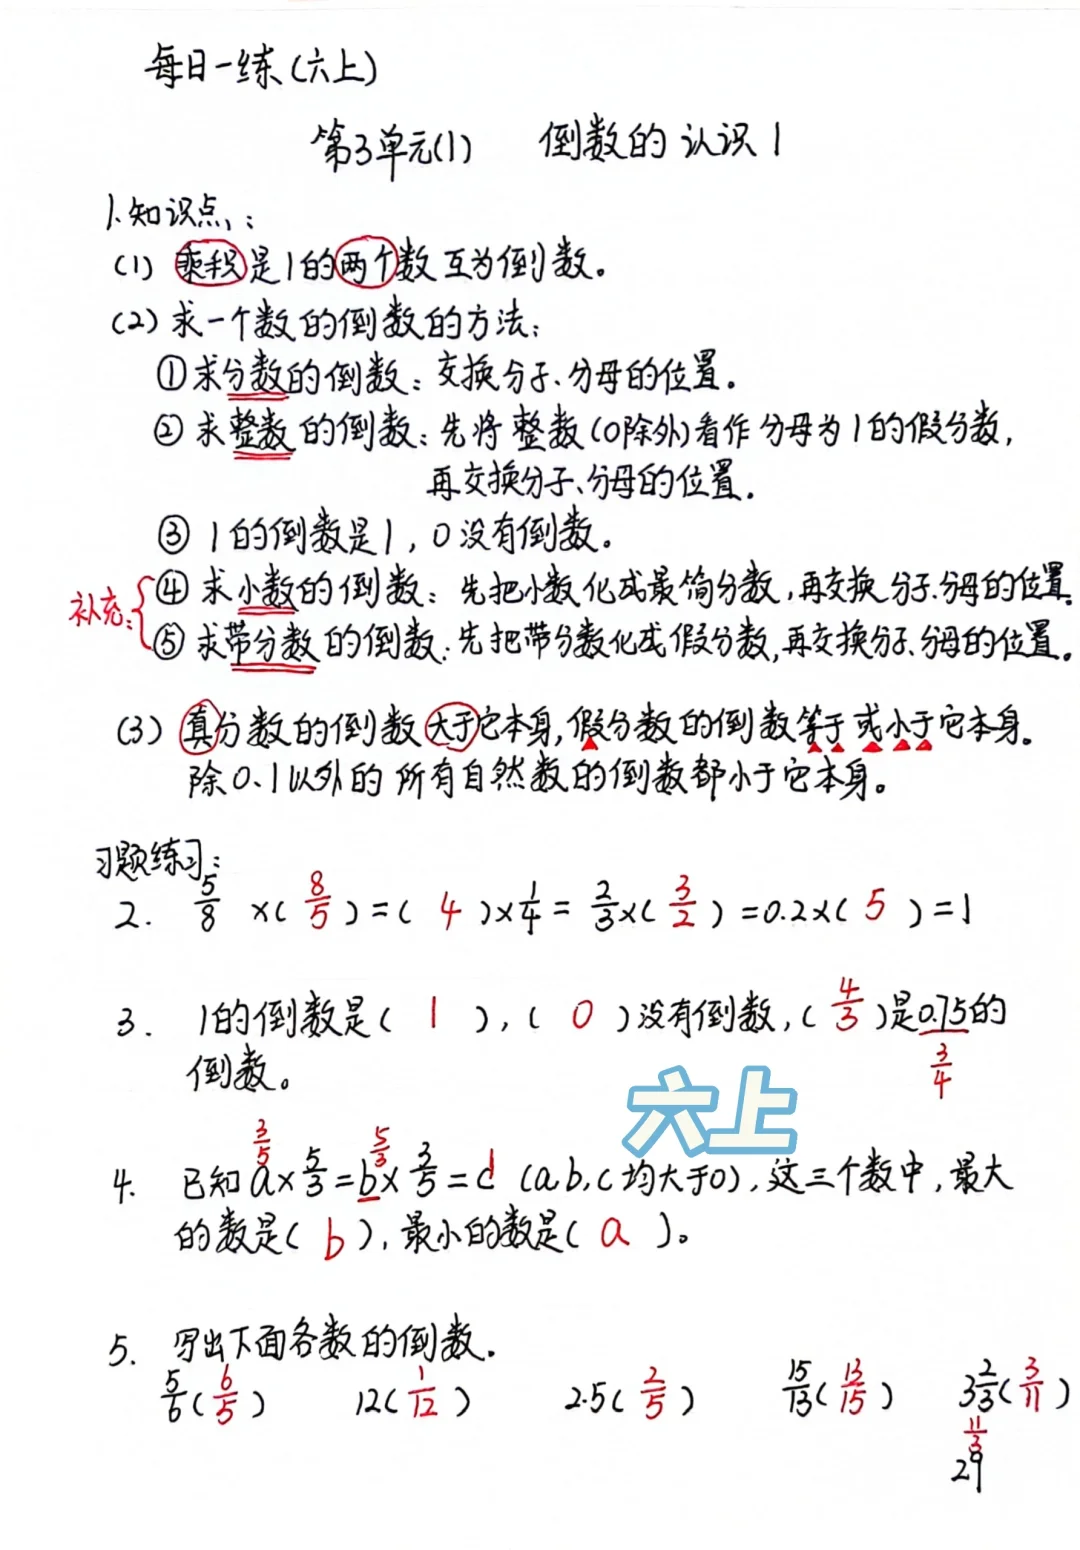 每日一练(六上)
第3单元(1) 倒数的认识1
1.知识点:
(1) 乘积是1的两个数互为倒数。
(2) 求一个数的倒数的方法:
①求分数的倒数:交换分子、分母的位置。
②求整数的倒数:先将整数(0除外)看作分母为1的假分数,
再交换分子、分母的位置。
③ 1的倒数是1,0没有倒数。
补充:
④ 求小数的倒数:先把小数化成最简分数,再交换分子、分母的位置.
⑤ 求带分数的倒数:先把带分数化成假分数,再交换分子、分母的位置。
(3) 真分数的倒数大于它本身,假分数的倒数等于或小于它本身。
除0、1以外的所有自然数的倒数都小于它本身。
习题练习:
2. 5/8 ×( 8/5 )=( 4 )×1/4 = 2/3×( 3/2 )=0.2×( 5 )=1
3. 1的倒数是( 1 ),( 0 )没有倒数,( 4/3 )是0.75的
3/4
倒数。
六上
3/5 5/3 1
4. 已知a×5/3=b×3/5=c (a,b,c均大于0),这三个数中,最大
的数是( b ),最小的数是( a )。
5. 写出下面各数的倒数.
5/6( 6/5 ) 12( 1/12 ) 2.5( 2/5 ) 15/13( 13/15 ) 3 2/3( 3/11 )
11/3
29